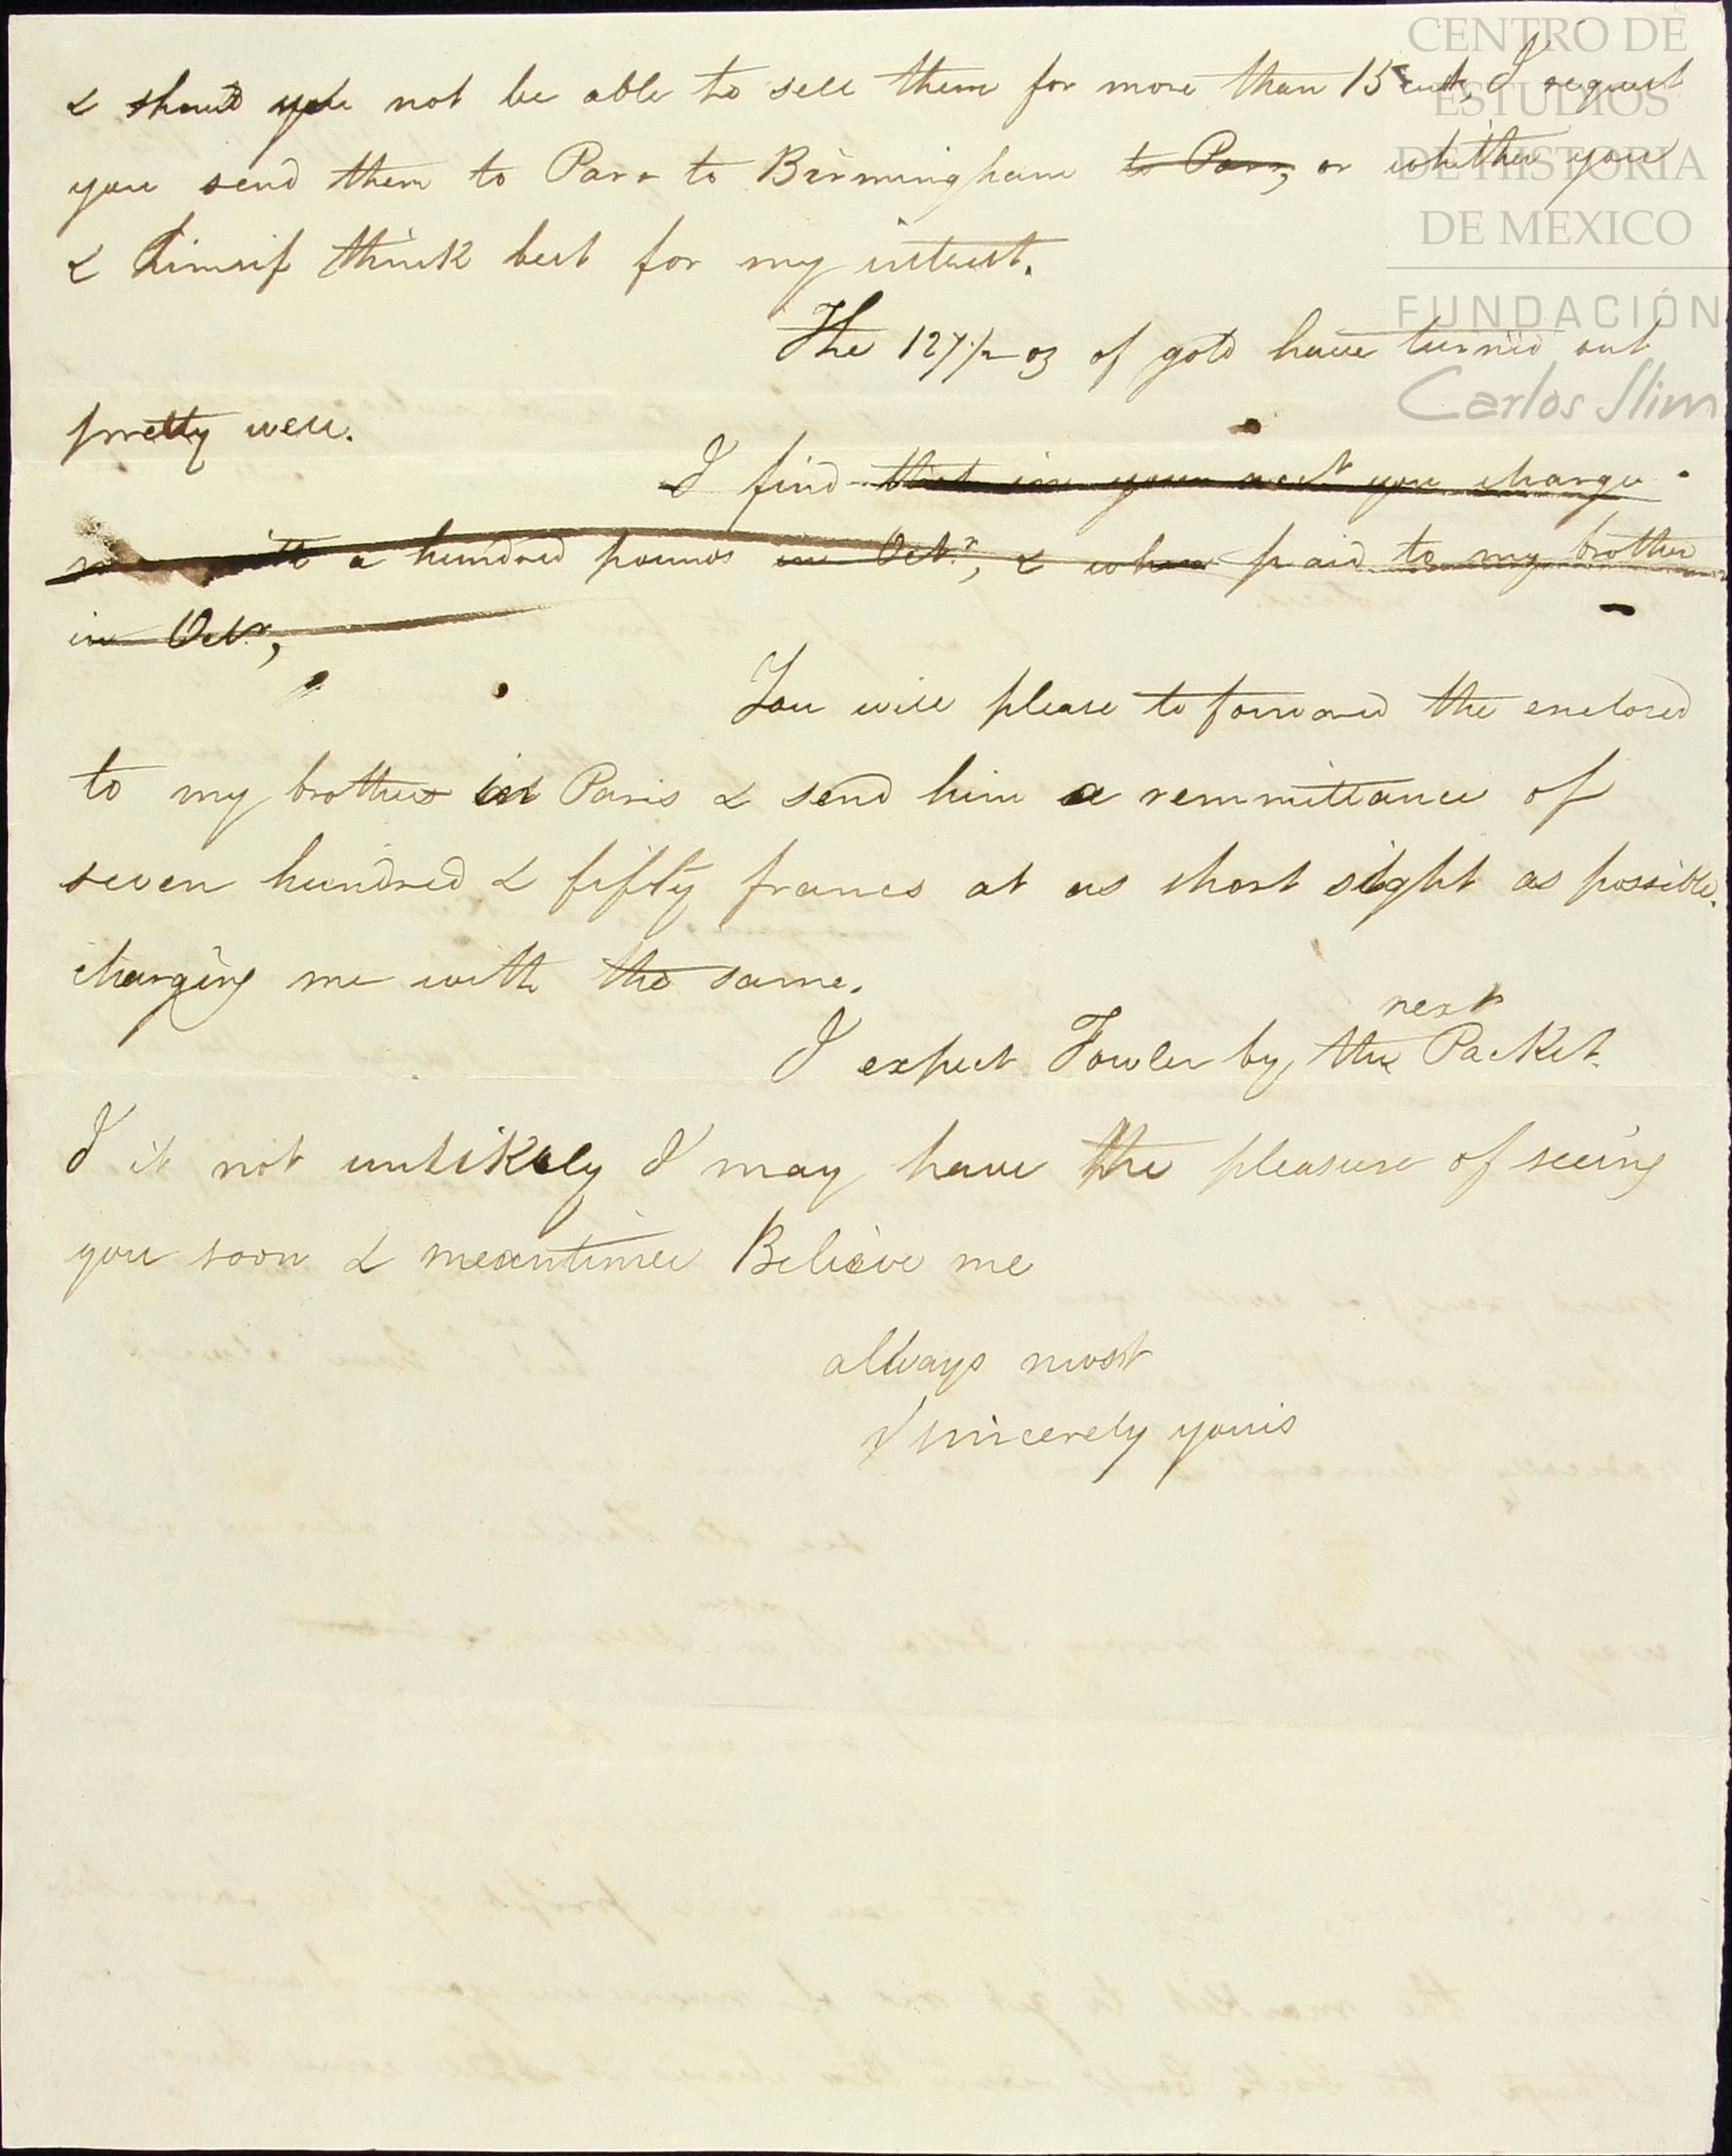 & should you not be able to sell them for more than 15 I request
you send them to Parr to Birmingham to Parr, or whither you
& himself think best for my interest.
The 127½ oz of gold have turned out
pretty well.
I find that in your acct you charge
me with a hundred pounds in Octr, & when paid to my brother
in Octr,
You will please to forward the enclosed
to my brother in Paris & send him a remmittance of
seven hundred & fifty francs at as short sight as possible.
charging me with the same.
next
I expect Fowler by the Packet.
I it not unlikely I may have the pleasure of seeing
you soon & meantime Believe me
always most
Sincerely yours
CENTRO DE
ESTUDIOS
DE HISTORIA
DE MEXICO
FUNDACIÓN
Carlos Slim